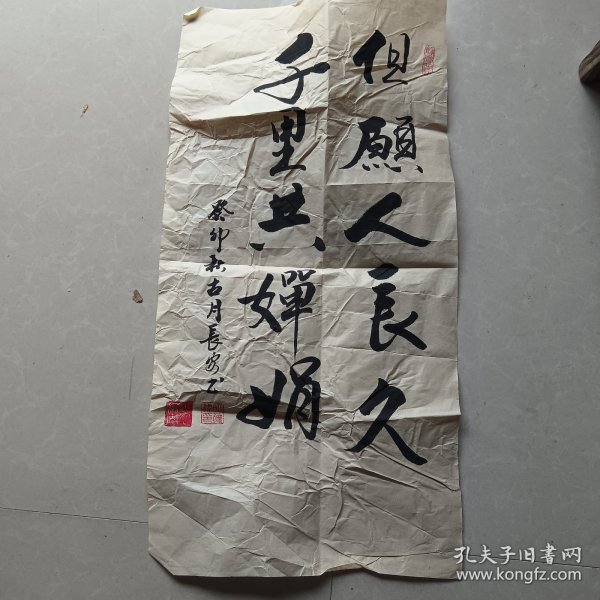 但願人長久
千里共嬋娟
癸卯秋古月長安
孔夫子旧書网
www.kongfz.com